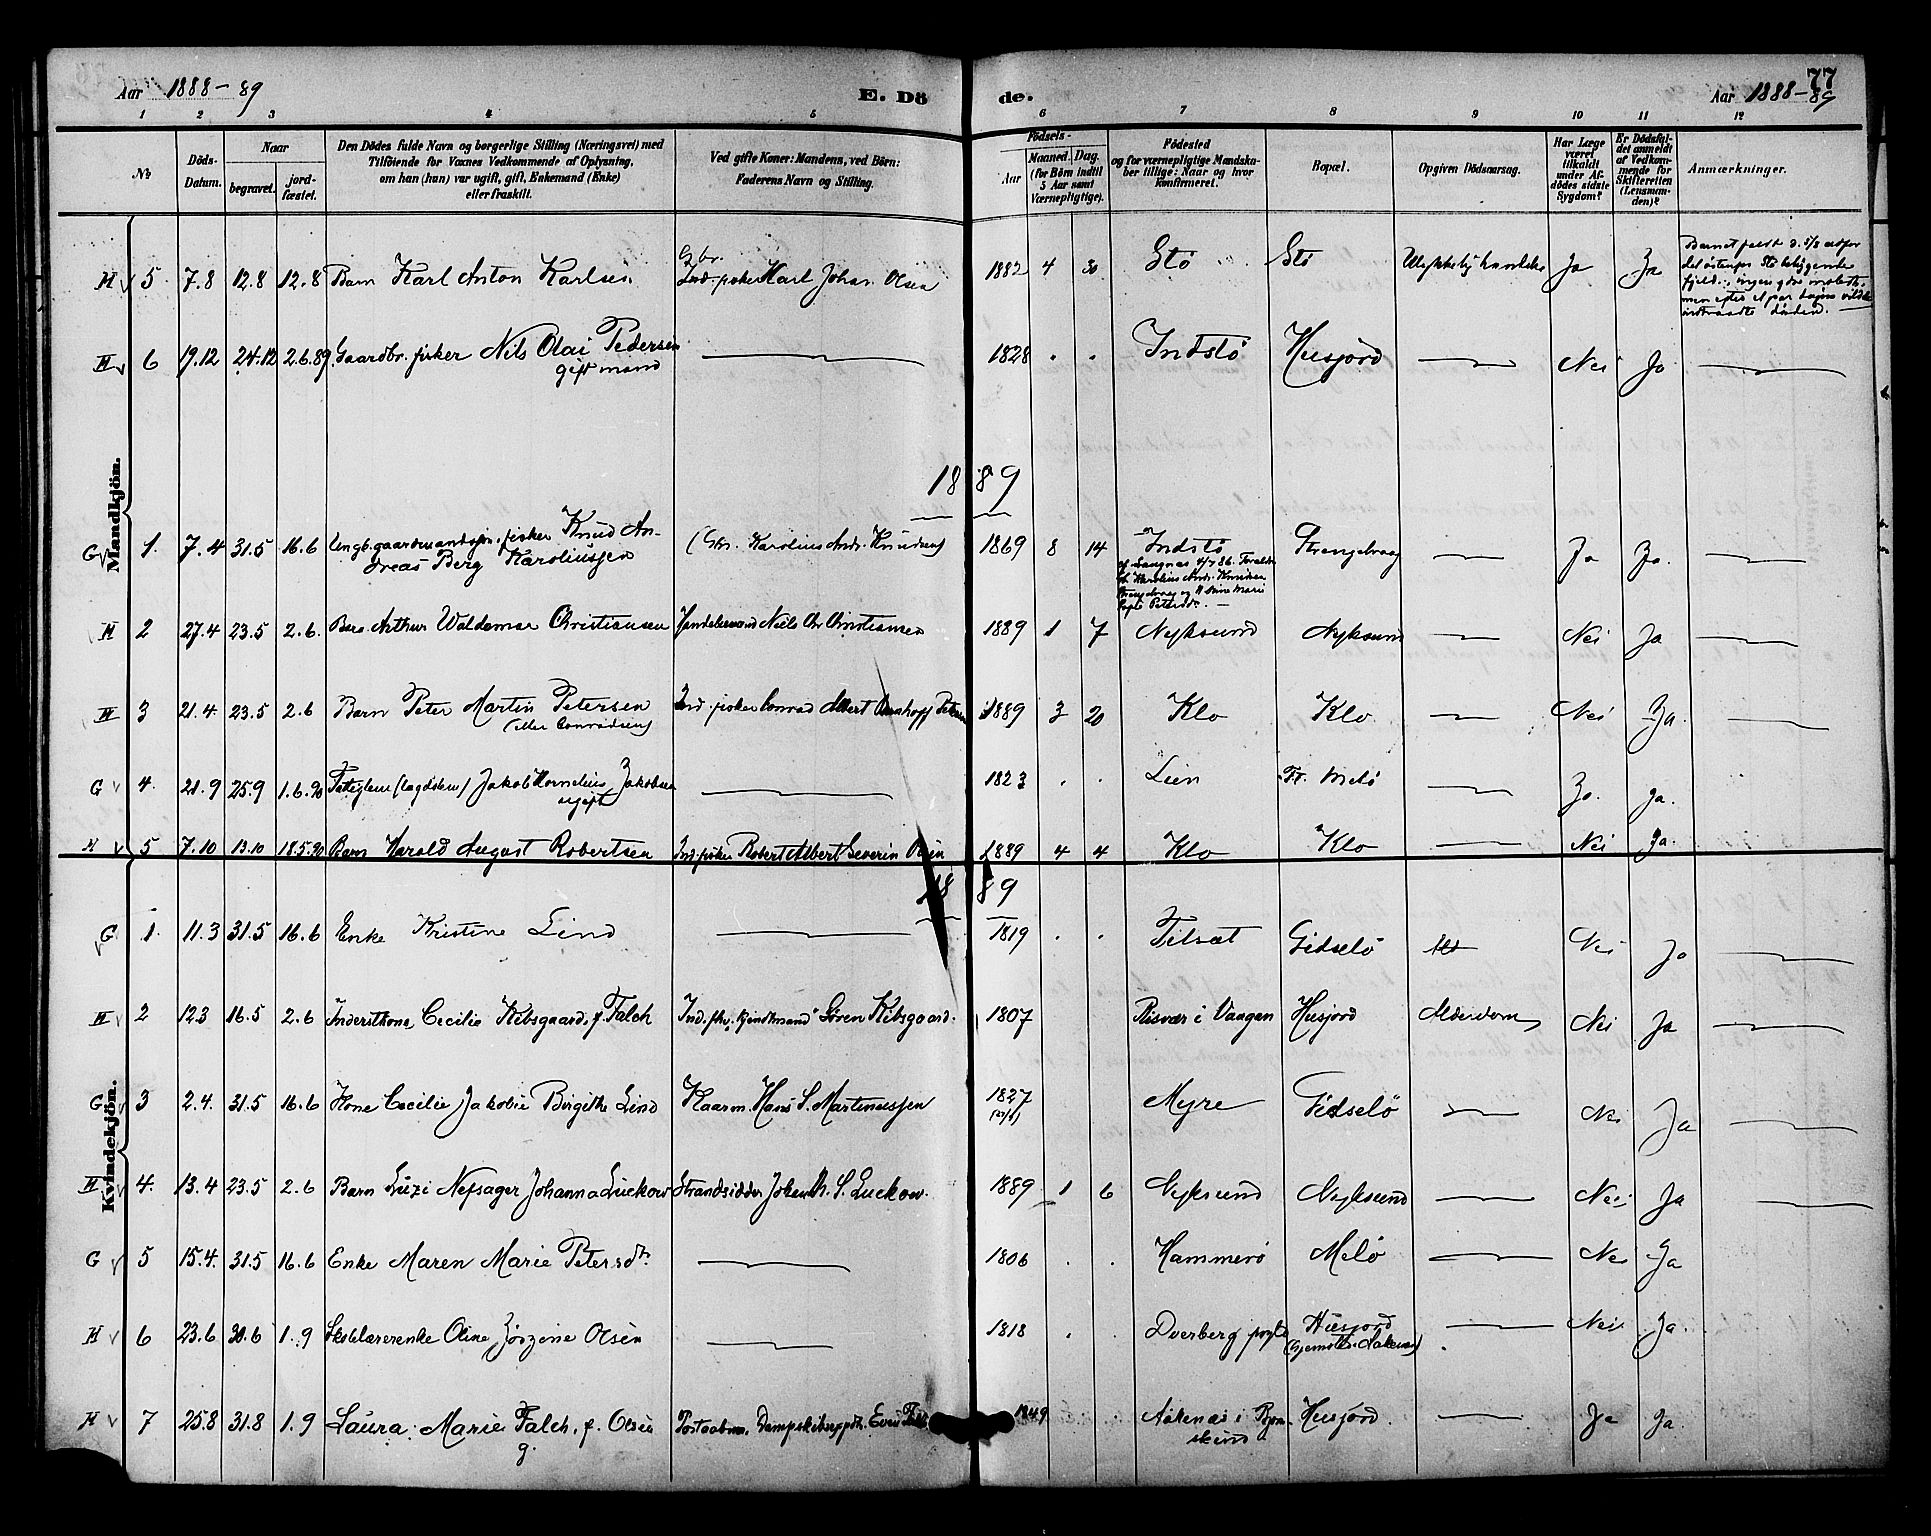 Aar 1888-89 E. Dö de. Aar 1888-89 77
1 2 3 4 5 6 7 8 9 10 11 12
№
Döds-
Datum.
Naar
begravet.
jord-
fæstet.
Den Dödes fulde Navn og borgerlige Stilling (Næringsvei) med
Tilföiende for Voxnes Vedkommende af Oplysning,
om han (hun) var ugift, gift, Enkemand (Enke)
eller fraskilt.
Ved gifte Koner: Mandens, ved Börn:
Faderens Navn og Stilling.
Födsels-
Aar
Maaned. Dag.
(for Börn indtil
5 Aar samt
Værnepligtige).
Födested
og for værnepligtige Mandska-
ber tillige: Naar og hvor
konfirmeret.
Bopæl.
Opgiven Dödsaarsag.
Har Læge
været
tilkaldt
under Af-
dödes sidste
Sygdom?
Er Dödsfal-
det anmeldt
af Vedkom-
mende for
Skifteretten
(Lensman-
den)?
Anmærkninger.
Mandkjön.
H 5 7.8 12.8 12.8 Barn Karl Anton Karlsen Gbr. Ind. fisker Karl Johan Olsen 1882 4 30 Stö Stö Ja Ja
H 6 19.12 24.12 2.6.89 Gaardbr. fisker Nils Olai Pedersen 1828 . . Indstö Husjord Nei Ja
gift mand
1889
G 1. 7.4 31.5 16.6 Ungk. gaardmandssön, fisker Knud An- (Gbr. Karolius Andr. Knudsen) 1869 8 14 Indstö Strengelvaag Ja Ja.
dreas Berg Karoliussen
H 2 27.4 23.5 2.6. Barn Arthur Waldemar Christiansen Handelsmand Niels Chr. Christiansen 1889 1 7 Nyksund Nyksund Nei Ja
H 3 21.4. 23.5 2.6 Barn Peter Martin Petersen Ind. fisker Conrad Albert 1889 3 20 Klo Klo Nei Ja.
(eller Conradsen)
G 4. 21.9 25.9 1.6.90 Fattiglem (lægdslem) Jakob Kornelius Jakobsen 1823 . . Lien Fr. Melö Ja. Ja.
ugift
H 5 7.10 13.10 18.5.90 Barn Harold August Robertsen Ind. fisker Robert Albert Severin 1889 4 4 Klo Klo Nei Ja.
Kvindekjön.
1889
G. 1. 11.3 31.5 16.6 Enke Kristine Lind 1819 . . Tilsæt Gidselö Nei Ja
H 2 12.3 16.5 2.6 Inderstkone Cecilie Kibsgaard, f. Falch Ind. fhv. kjendtmand Sören Kibsgaard. 1807 Risvær i Vaagen Husjord Alderdom Nei Ja
G 3 2.4. 31.5 16.6 Kone Cecilie Jakobie Birgithe Lind Kaarm. Hans S. Martinussen 1827 Myre Gidselö Nei Ja
H 4. 13.4 23.5 2.6 Barn Luzi Nefsager Johanna Luckow Strandsidder Johan S. Luckow. 1889 1 6 Nyksund Nyksund Nei Ja
G 5 15.4. 31.5 16.6 Enke Maren Marie Petersdtr 1806 . . Hammerö Melö Nei Ja
H 6 23.6 30.6 1.9 Skolelærerenke Oline Jörgine Olsen 1818 . . Dverberg pgld Husjord Nei Ja.
H 7 25.8 31.8 1.9 Laura Marie Falch, f. Olsen Postaabner, Dampskibsexpdtr. Even Falch 1849 . . Aaknæs i Bjørn- Husjord. Ja Ja.
g. skind